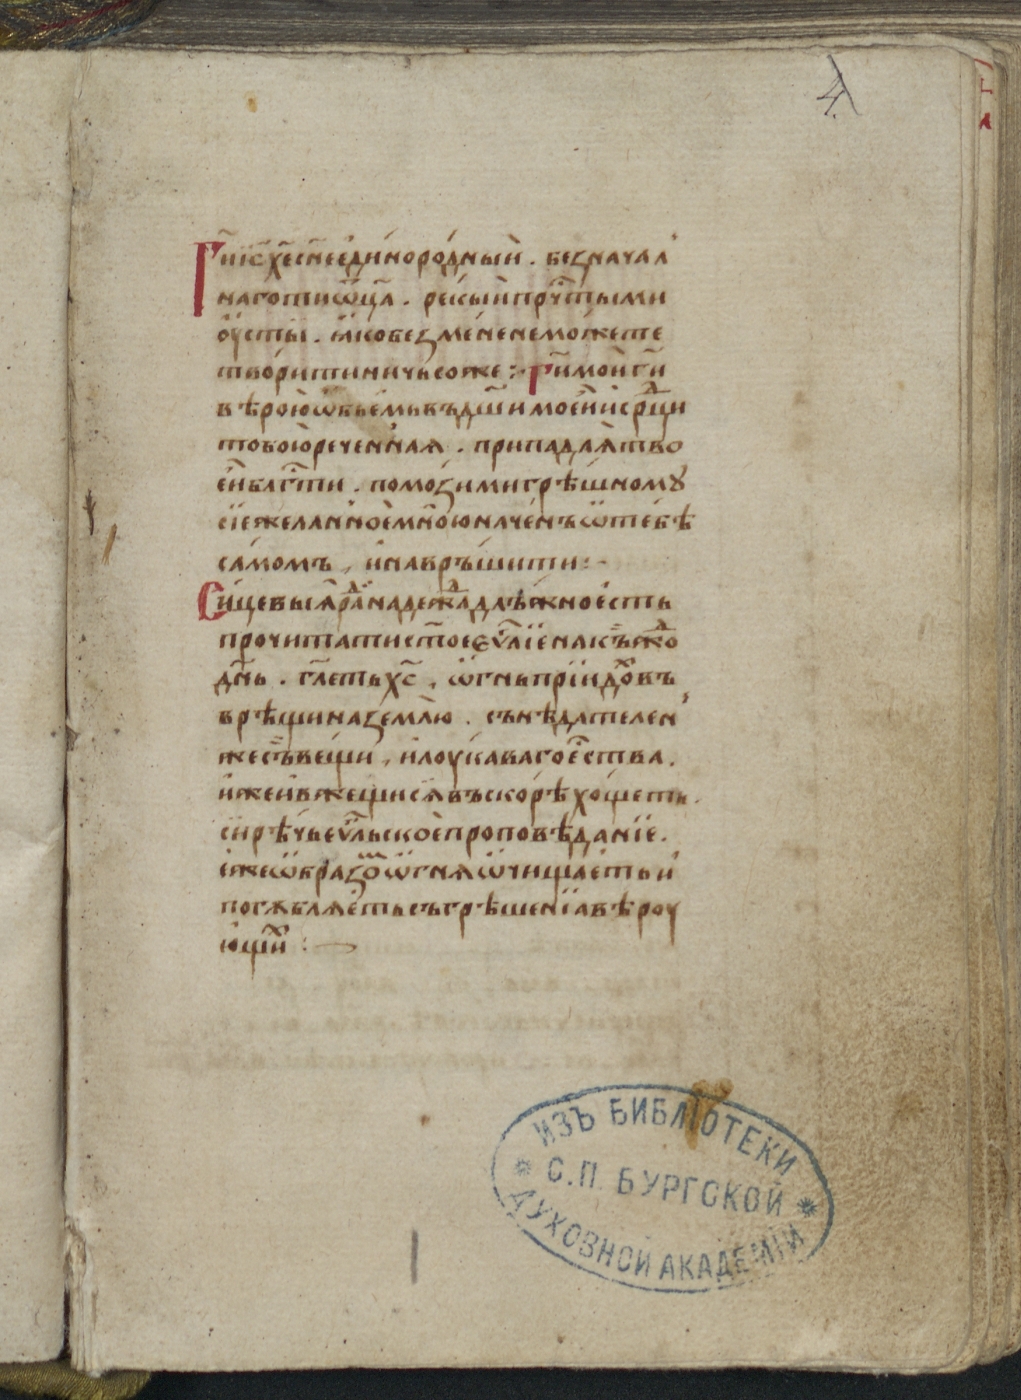 4
Г҃и іс҃ х҃е сн҃е единоро́дный . безнача́л
наго ти ѿц҃а . рекый прч҇тыми
оу҆сты . ꙗ҆ко без мене не мо́жете
твори́ти ничьсоже :· Г҃и мой г҃и
вѣрою ѡбъемь въ дш҃и моей и ср҃дци
тобою реченная . припадаꙗ тво
ей блг҇ти . помози ми грѣшному
сїе желанное мною начен ъ ѿ тебѣ
само́мъ , и навръшити :·
Сицевыѧ ра́ди надежда длъжно есть
прочитати ст҃ое еѵ҃лїе на къждо
дн҃ь . гл҃еть х҃с , ѡгнь прїидо́х въ
врѣщи на землю . сънѣдателен
же съ вещи , и лоукаваго ества .
иже и вжещисѧ въскорѣ хощеть .
сирѣчь еѵ҃льское проповѣданїе .
еже ѡбразом ѡгнѧ ѡчищаеть и
погѫблѧеть съгрѣшенїа вѣроу
ющих :~
ИЗЪ БИБЛІОТЕКИ
С.П. БУРГСКОЙ
ДУХОВНОЙ АКАДЕМІИ